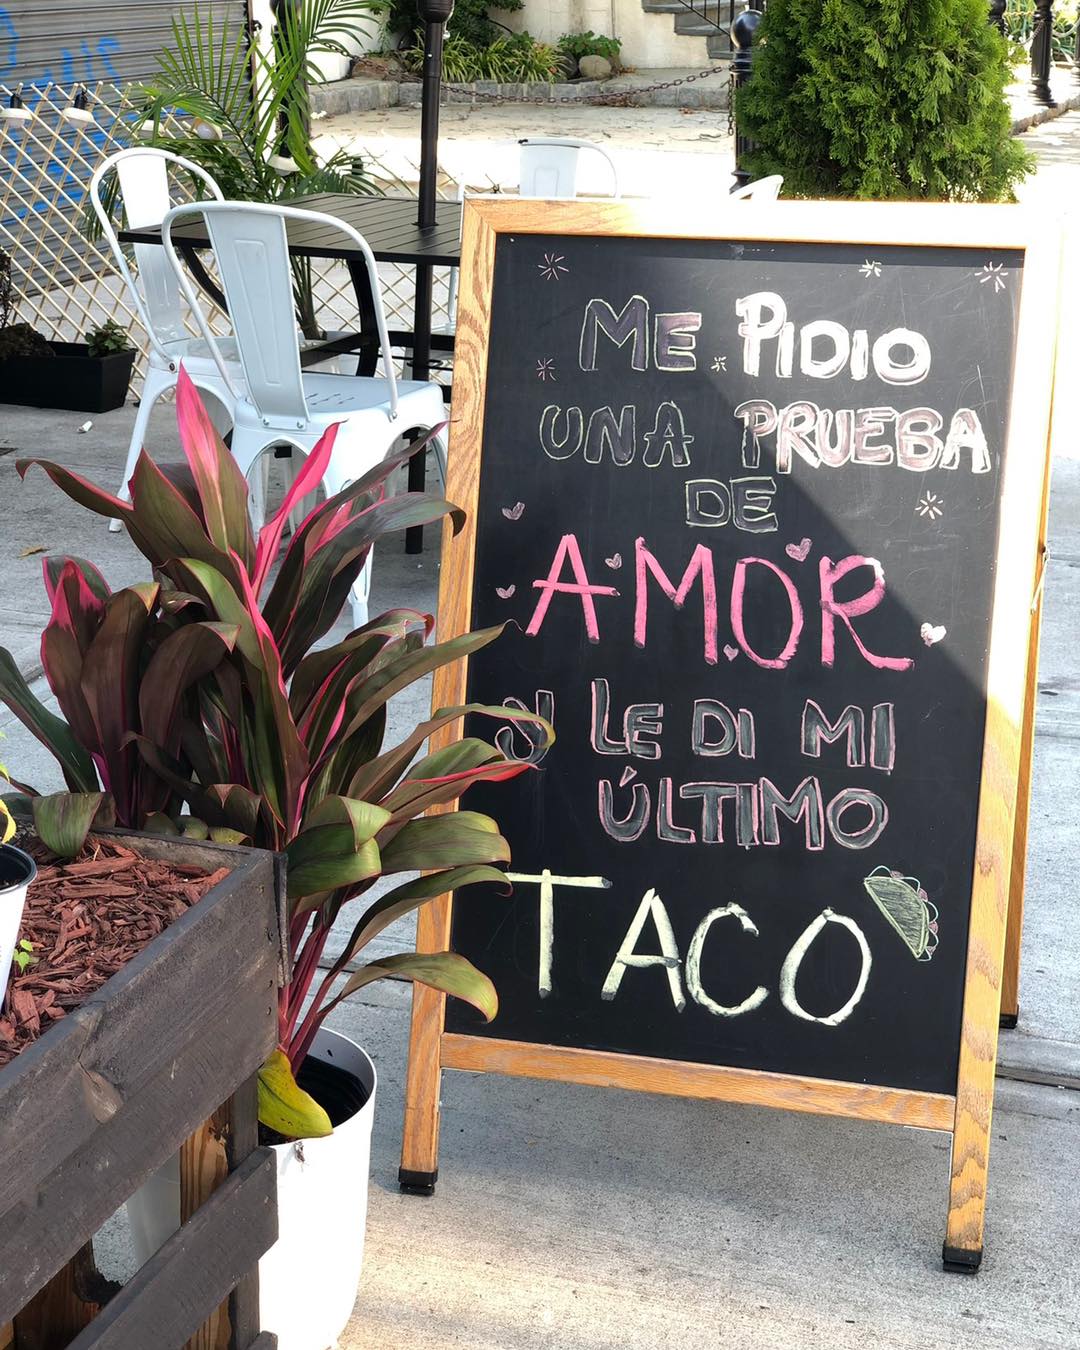 ME PIDIO
UNA PRUEBA
DE
AMOR
Y LE DI MI
ÚLTIMO
TACO